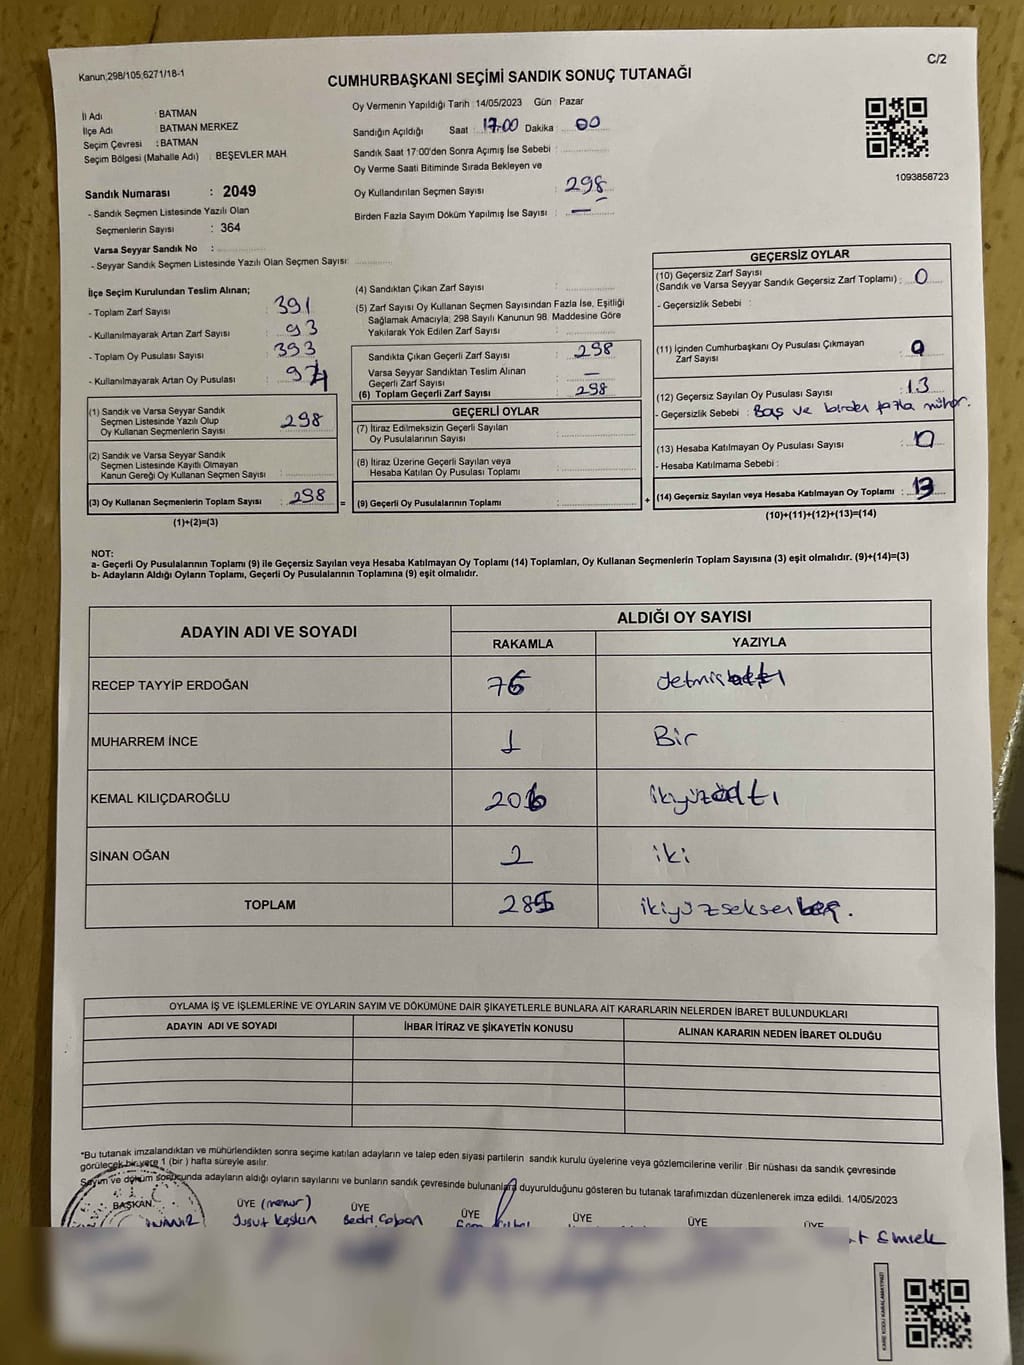 Kanun;298/105,6271/18-1
C/2
CUMHURBAŞKANI SEÇİMİ SANDIK SONUÇ TUTANAĞI
İl Adı : BATMAN
İlçe Adı : BATMAN MERKEZ
Seçim Çevresi : BATMAN
Seçim Bölgesi (Mahalle Adı) : BEŞEVLER MAH
Sandık Numarası : 2049
- Sandık Seçmen Listesinde Yazılı Olan
Seçmenlerin Sayısı : 364
Varsa Seyyar Sandık No :
- Seyyar Sandık Seçmen Listesinde Yazılı Olan Seçmen Sayısı:
Oy Vermenin Yapıldığı Tarih : 14/05/2023 Gün : Pazar
Sandığın Açıldığı Saat : 17.00 Dakika : 00
Sandık Saat 17:00'den Sonra Açımış İse Sebebi :
Oy Verme Saati Bitiminde Sırada Bekleyen ve
Oy Kullandırılan Seçmen Sayısı : 298
Birden Fazla Sayım Döküm Yapılmış İse Sayısı : —
1093858723
İlçe Seçim Kurulundan Teslim Alınan;
- Toplam Zarf Sayısı : 391
- Kullanılmayarak Artan Zarf Sayısı : 93
- Toplam Oy Pusulası Sayısı : 393
- Kullanılmayarak Artan Oy Pusulası :
(1) Sandık ve Varsa Seyyar Sandık
Seçmen Listesinde Yazılı Olup
Oy Kullanan Seçmenlerin Sayısı : 298
(2) Sandık ve Varsa Seyyar Sandık
Seçmen Listesinde Kayıtlı Olmayan
Kanun Gereği Oy Kullanan Seçmen Sayısı :
(3) Oy Kullanan Seçmenlerin Toplam Sayısı : 298 =
(1)+(2)=(3)
(4) Sandıktan Çıkan Zarf Sayısı :
(5) Zarf Sayısı Oy Kullanan Seçmen Sayısından Fazla İse, Eşitliği
Sağlamak Amacıyla; 298 Sayılı Kanunun 98. Maddesine Göre
Yakılarak Yok Edilen Zarf Sayısı :
Sandıkta Çıkan Geçerli Zarf Sayısı : 298
Varsa Seyyar Sandıktan Teslim Alınan
Geçerli Zarf Sayısı : —
(6) Toplam Geçerli Zarf Sayısı : 298
GEÇERLİ OYLAR
(7) İtiraz Edilmeksizin Geçerli Sayılan
Oy Pusulalarının Sayısı :
(8) İtiraz Üzerine Geçerli Sayılan veya
Hesaba Katılan Oy Pusulası Toplamı :
(9) Geçerli Oy Pusulalarının Toplamı : +
GEÇERSİZ OYLAR
(10) Geçersiz Zarf Sayısı
(Sandık ve Varsa Seyyar Sandık Geçersiz Zarf Toplamı) : 0
- Geçersizlik Sebebi :
(11) İçinden Cumhurbaşkanı Oy Pusulası Çıkmayan
Zarf Sayısı : 0
(12) Geçersiz Sayılan Oy Pusulası Sayısı : 13
- Geçersizlik Sebebi : Boş ve birden fazla mühür.
(13) Hesaba Katılmayan Oy Pusulası Sayısı : 0
- Hesaba Katılmama Sebebi :
(14) Geçersiz Sayılan veya Hesaba Katılmayan Oy Toplamı : 13
(10)+(11)+(12)+(13)=(14)
NOT:
a- Geçerli Oy Pusulalarının Toplamı (9) ile Geçersiz Sayılan ve Hesaba Katılmayan Oy Toplamı (14) Toplamları, Oy Kullanan Seçmenlerin Toplam Sayısına (3) eşit olmalıdır. (9)+(14)=(3)
b- Adayların Aldığı Oyların Toplamı, Geçerli Oy Pusulalarının Toplamına (9) eşit olmalıdır.
ADAYIN ADI VE SOYADI ALDIĞI OY SAYISI
RAKAMLA YAZIYLA
RECEP TAYYİP ERDOĞAN 76
MUHARREM İNCE 1 Bir
KEMAL KILIÇDAROĞLU 206 ikiyüzaltı
SİNAN OĞAN 2 iki
TOPLAM 285 ikiyüzseksenbeş.
OYLAMA İŞ VE İŞLEMLERİNE VE OYLARIN SAYIM VE DÖKÜMÜNE DAİR ŞİKAYETLERLE BUNLARA AİT KARARLARIN NELERDEN İBARET BULUNDUKLARI
ADAYIN ADI VE SOYADI İHBAR İTİRAZ VE ŞİKAYETİN KONUSU ALINAN KARARIN NEDEN İBARET OLDUĞU
*Bu tutanak imzalandıktan ve mühürlendikten sonra seçime katılan adayların ve talep eden siyasi partilerin sandık kurulu üyelerine veya gözlemcilerine verilir. Bir nüshası da sandık çevresinde
görülecek bir yere 1 (bir ) hafta süreyle asılır.
Sayım ve döküm sonucunda adayların aldığı oyların sayılarını ve bunların sandık çevresinde bulunanlara duyurulduğunu gösteren bu tutanak tarafımızdan düzenlenerek imza edildi. 14/05/2023
BAŞKAN ÜYE (memur) ÜYE ÜYE ÜYE ÜYE ÜYE
Yusuf Keskin Bedri Çoban
KARE KODU KARALAMAYINIZ!